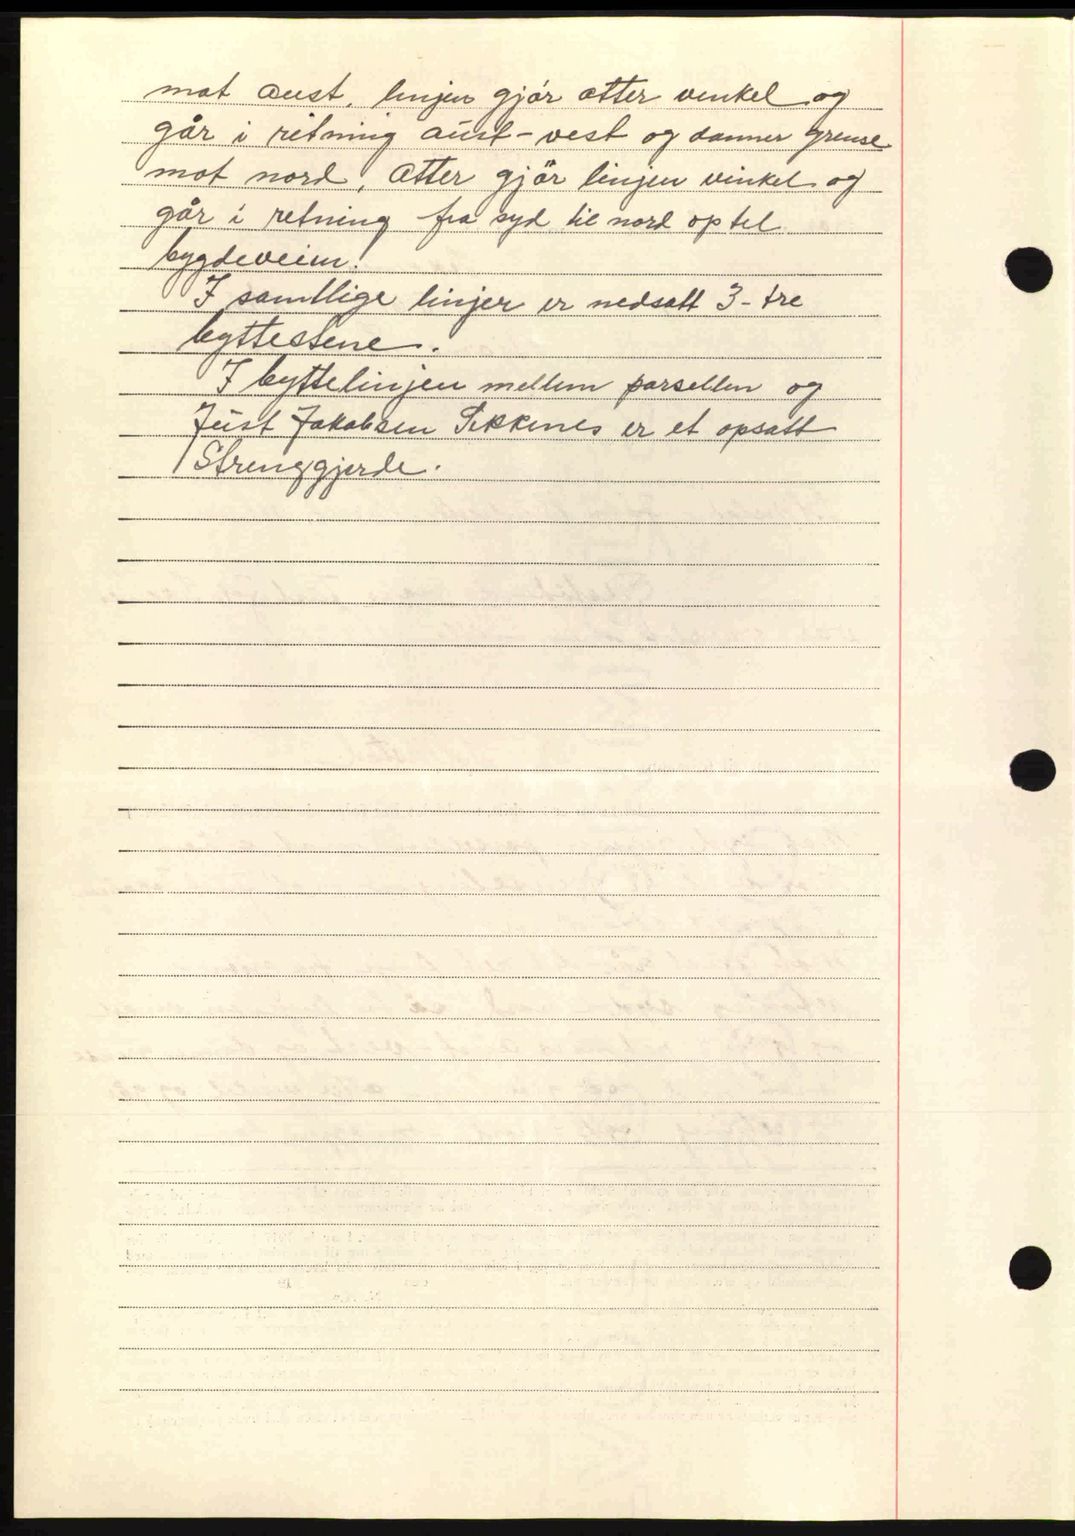 mot aust, linjen gjør atter vinkel og
går i retning aust-vest og danner grense
mot nord, atter gjör linjen vinkel og
går i retning fra syd til nord op til
bygdeveien.
I samtlige linjer er nedsatt 3-tre
byttestene.
I byttelinjen mellem parsellen og
Just Jakobsen er et opsatt
Strenggjerde.